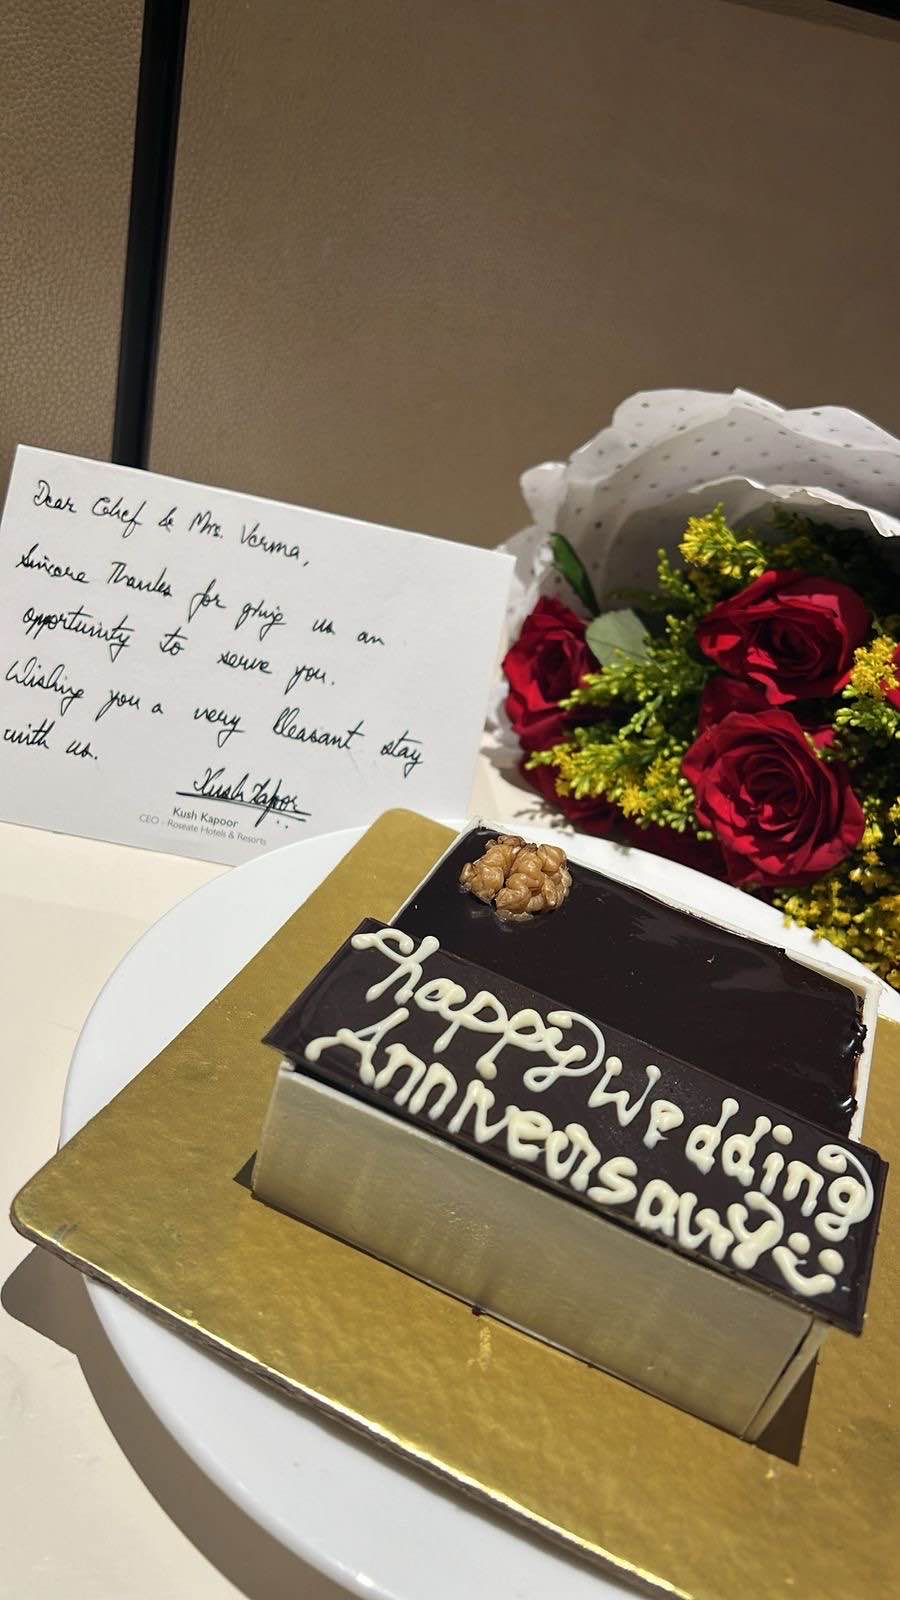 Dear Chef & Mrs. Verma,
Sincere Thanks for giving us an
opportunity to serve you.
Wishing you a very Pleasant stay
with us.
Kush Kapoor
Kush Kapoor
CEO - Roseate Hotels & Resorts
happy Wedding
Anniversary